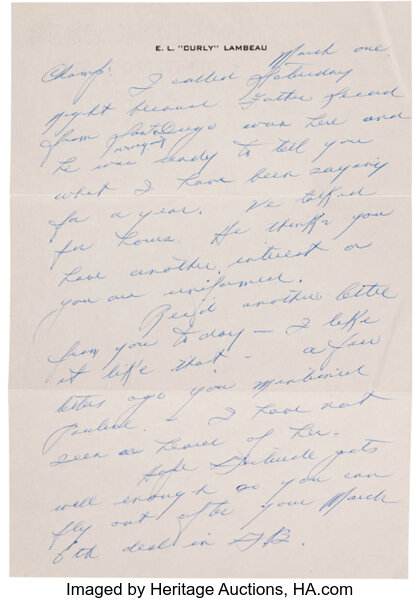 E. L. "CURLY" LAMBEAU
March one.
Champ: I called Saturday
night because Father
from San Diego was here and
he was ready to tell you
what I have been saying
for a year. We talked
for hours. He thinks you
have another interest or
you are uninformed.
Rec'd another letter
from you today — I like
it like that — a few
letters ago you mentioned
Pauline. — I have not
seen or heard of her.
Hope Gertrude gets
well enough so you can
fly out after your March
6th deal in G.B.
Imaged by Heritage Auctions, HA.com